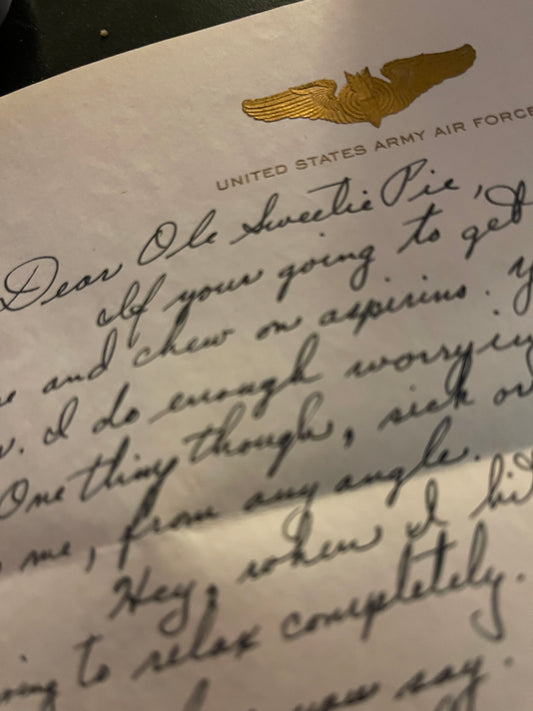 UNITED STATES ARMY AIR FORCE
Dear Ole Sweetie Pie,
If your going to get
and chew on aspirins.
I do enough
One thing though, sick or
me, from any angle.
Hey, when I
to relax completely.
you say.